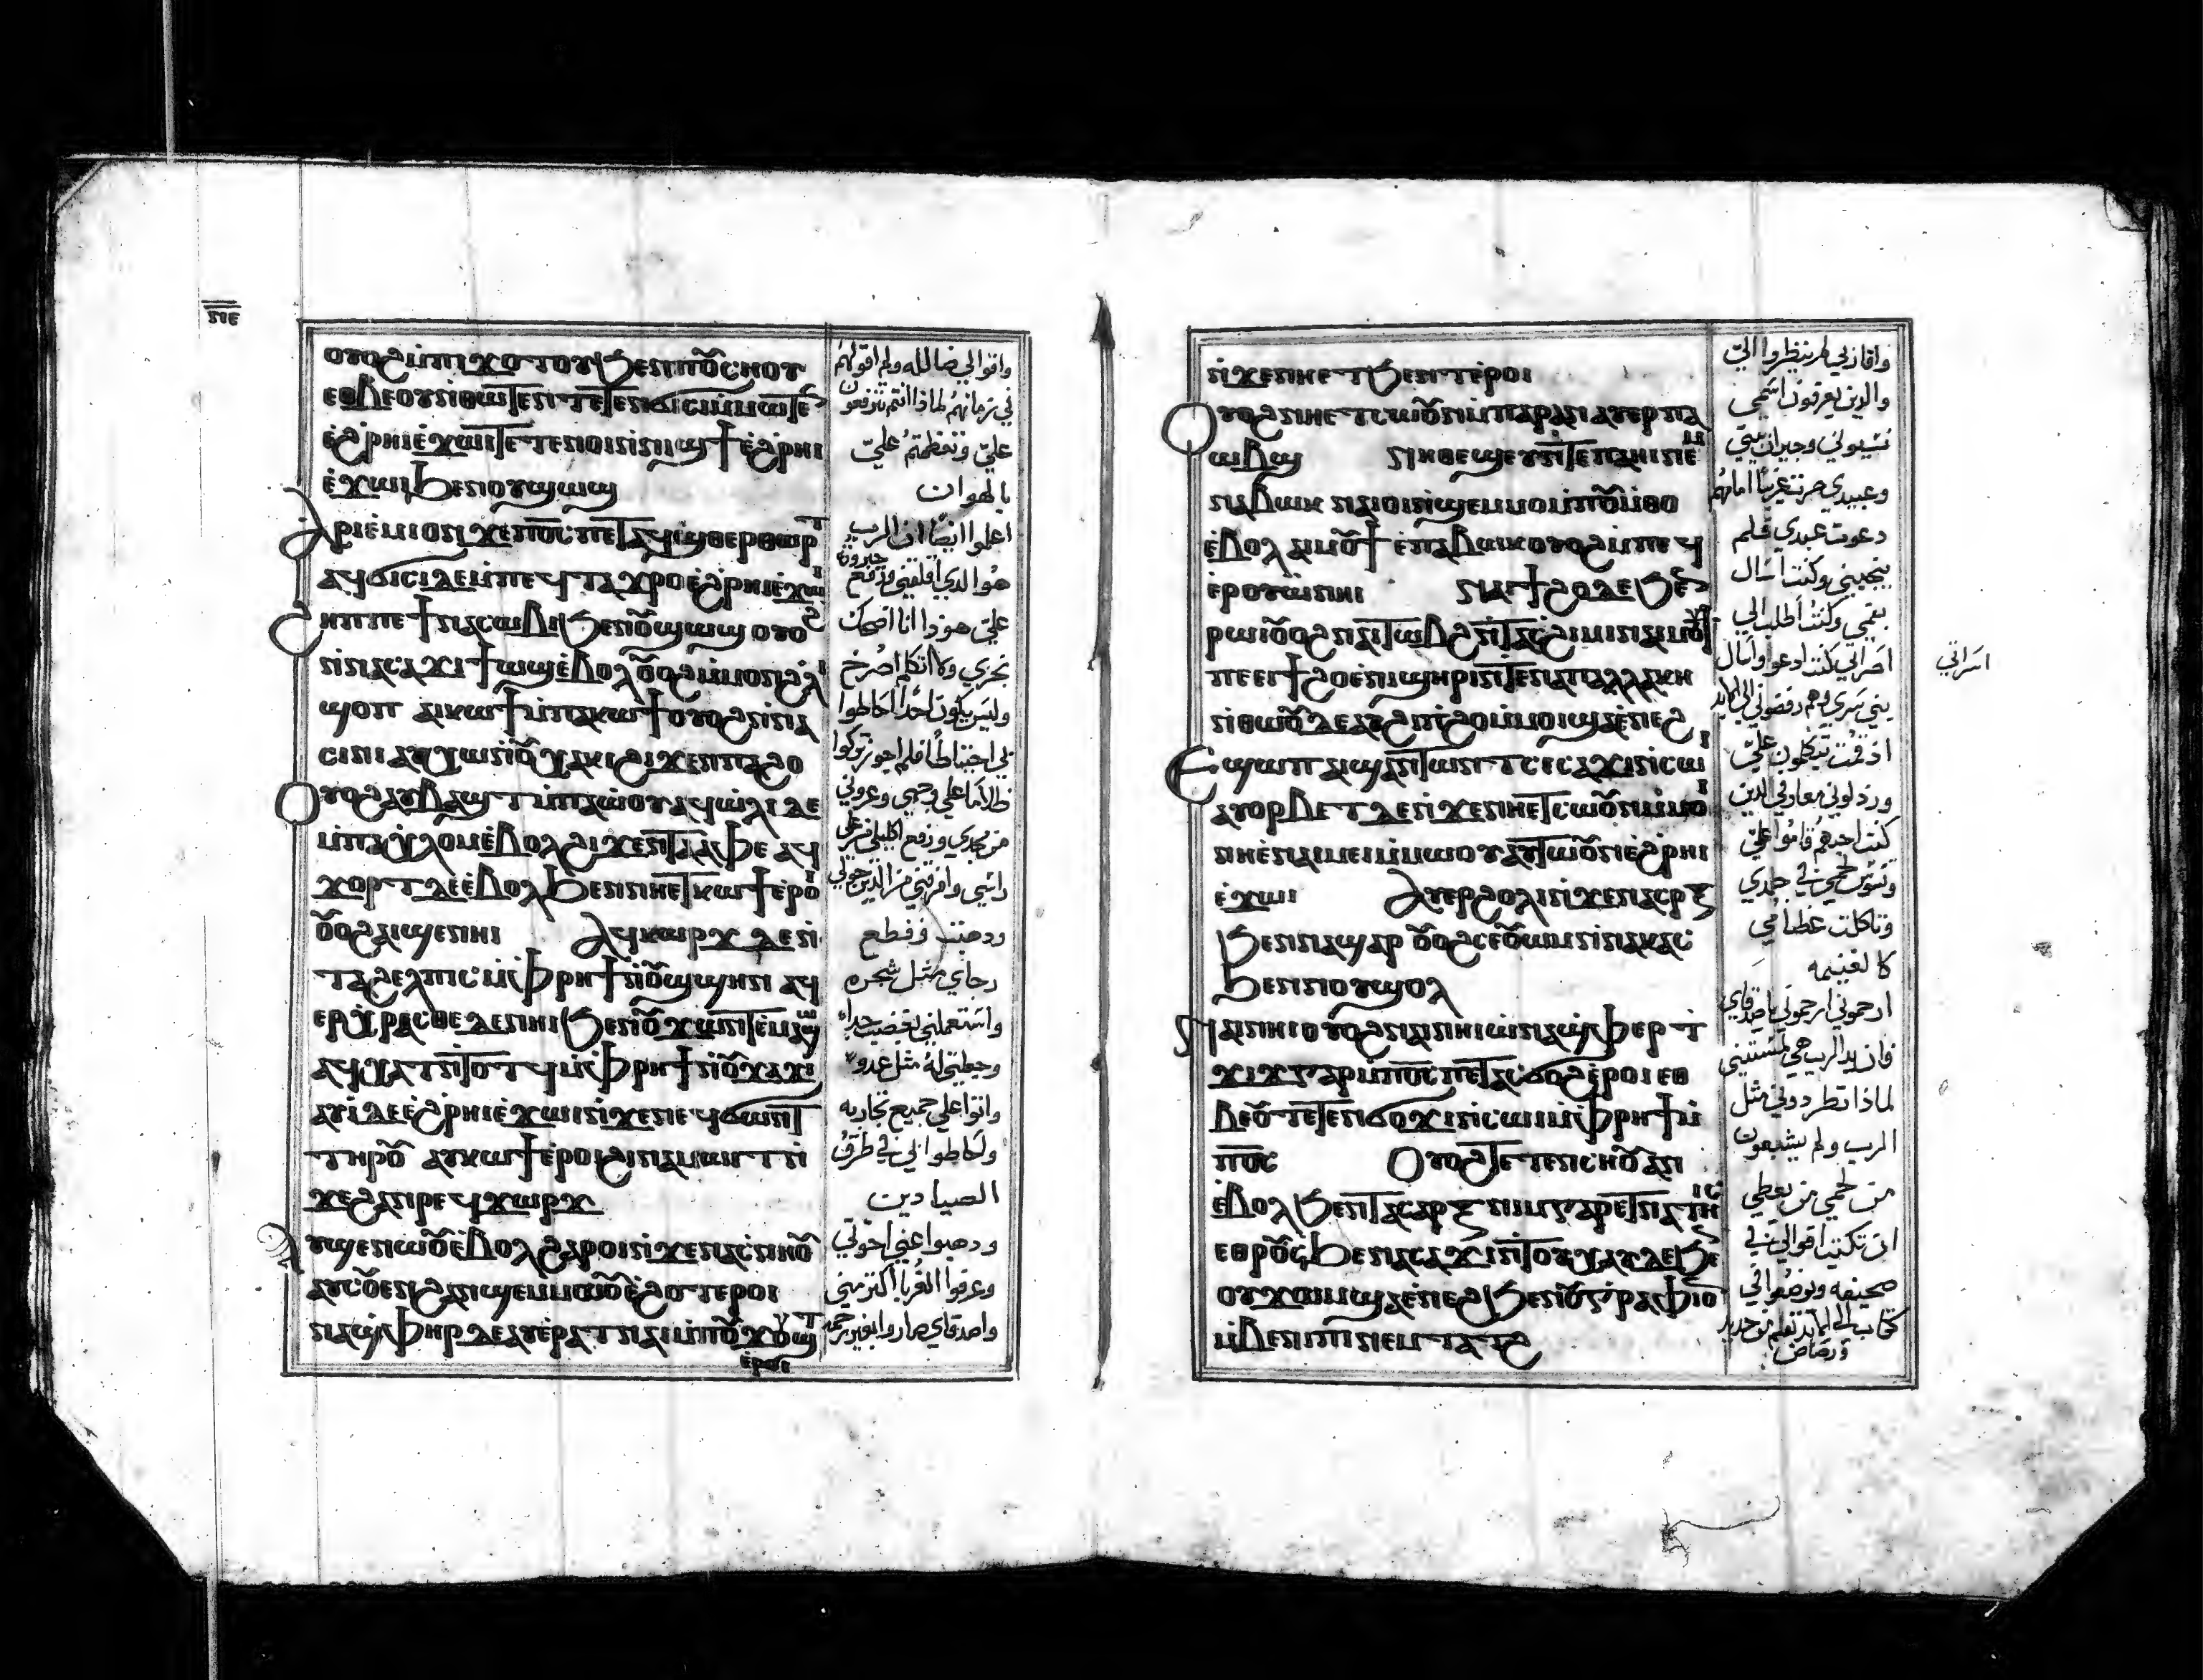 ⲛⲓⲉ
ⲟⲩⲟϩ ⲙ̇ⲡⲓϫⲟⲧⲟⲩ ϧⲉⲛ ⲡⲟⲩⲥⲏⲟⲩ
ⲉⲑⲃⲉⲟⲩ ⲛ̇ⲑⲱⲧⲉⲛ ⲧⲉⲧⲉⲛϭⲓⲥⲓ ⲙ̇ⲙⲱⲧⲉⲛ
ⲉ̇ϩⲣⲏⲓ ⲉ̇ϫⲱⲓ ⲧⲉⲧⲉⲛⲟⲓ ⲛ̇ⲛⲓϣϯ ⲉ̇ϩⲣⲏⲓ
ⲉ̇ϫⲱⲓ ϧⲉⲛ ⲟⲩϣⲱϣ
ⲁⲣⲓⲉ̇ⲙⲓ ⲟⲛ ϫⲉ ⲡ︦ⲟ︦ⲥ︦ ⲡⲉⲧⲁϥϣⲑⲉⲣⲑⲱⲣⲧ
ⲁϥϭⲓⲥⲓ ⲇⲉ ⲙ̇ⲡⲉϥⲧⲁϫⲣⲟ ⲉ̇ϩⲣⲏⲓ ⲉ̇ϫⲱⲓ
ϩⲏⲡⲡⲉ ϯⲛⲁⲥⲱⲃⲓ ϧⲉⲛ ⲟⲩϣⲱϣ ⲟⲩⲟϩ
ⲛ̇ⲛⲁⲥⲁϫⲓ ϯⲱϣ ⲉ̇ⲃⲟⲗ ⲟⲩⲟϩ ⲙ̇ⲙⲟⲛ ϩⲁⲡ
ϣⲟⲡ ⲁⲩⲕⲱϯ ⲙ̇ⲡⲁⲕⲱϯ ⲟⲩⲟϩ ⲛ̇ⲛⲁ
ⲥⲓⲛⲓ ⲁⲩⲭⲱ ⲛ̇ⲟⲩⲭⲁⲕⲓ ϩⲓϫⲉⲛ ⲡⲁϩⲟ
ⲟⲩⲟϩ ⲁⲩⲃⲁϣⲧ ⲙ̇ⲡⲁⲱ̇ⲟⲩ ⲁϥⲱ̇ⲗⲓ ⲇⲉ
ⲙ̇ⲡⲁⲭⲗⲟⲙ ⲉ̇ⲃⲟⲗ ϩⲓϫⲉⲛ ⲧⲁⲁⲫⲉ ⲁϥ
ϫⲟⲣⲧ ⲇⲉ ⲉ̇ⲃⲟⲗ ϧⲉⲛ ⲛⲏⲉⲧⲕⲱϯ ⲉ̇ⲣⲟⲓ
ⲟⲩⲟϩ ⲁⲓϣⲉⲛⲏⲓ ⲁϥⲕⲱⲣϫ ⲇⲉ ⲛ̇
ⲧⲁϩⲉⲗⲡⲓⲥ ⲙ̇ⲫⲣⲏϯ ⲛ̇ⲟⲩϣϣⲏⲛ ⲁϥ
ⲉⲣⲭⲣⲁⲥⲑⲉ ⲇⲉ ⲛⲏⲓ ϧⲉⲛ ⲟⲩϫⲱⲛⲧ ⲉⲙⲁϣⲱ
ⲁϥⲭⲁⲧ ⲛ̇ⲧⲟⲧϥ ⲙ̇ⲫⲣⲏϯ ⲛ̇ⲟⲩϫⲁϫⲓ
ⲁⲩⲓ̇ ⲇⲉ ⲉ̇ϩⲣⲏⲓ ⲉ̇ϫⲱⲓ ⲛ̇ϫⲉ ⲛⲉϥϭⲱⲛⲧ
ⲧⲏⲣⲟⲩ ⲁⲩⲕⲱϯ ⲉ̇ⲣⲟⲓ ϩⲓ ⲛⲁⲙⲱⲓⲧ ⲛ̇
ϫⲉ ϩⲁⲛⲣⲉϥϫⲱⲣϫ
ⲁⲩϣⲉⲛⲱⲟⲩ ⲉ̇ⲃⲟⲗ ϩⲁⲣⲟⲓ ⲛ̇ϫⲉ ⲛⲁⲥⲛⲏⲟⲩ
ⲁⲩⲥⲟⲩⲉⲛ ϩⲁⲛϣⲉⲙⲙⲱⲟⲩ ⲉ̇ϩⲟⲧⲉⲣⲟⲓ
ⲛⲁϣ̇ⲫⲏⲣ ⲇⲉ ⲁⲩⲉⲣⲁⲧⲛⲁⲓ ⲙ̇ⲡⲟⲩϫⲟⲩϣⲧ
ⲉ̇ⲣⲟⲓ
واقوالي ضا لله ولم اقولهم
في زمانهم لماذا انتم تترفعون
علي وتعظمتم علي
بالهوان
اعلموا ايضا ان الرب
هو الذي اقلقني ورفع جبروته
علي هوذا انا اضحك
بخزي ولا اتكلم اصرخ
وليس يكون احد احاطوا
من مجدي ورفع اكليلي من على
ودهبت وقطع
رجاي مثل شجره
واستعملني بغضب جدا
وحطني له مثل عدو
واتوا علي جميع تجاربه
واحاطوا بي في طرق
الصيادين
ودهبوا عني اخوتي
وعرفوا الغربا اكثر مني
واصدقاي صاروا بغير رحمه
ⲛ̇ϫⲉ ⲛⲏⲉⲧϧⲉⲛⲧ ⲉ̇ⲣⲟⲓ
ⲟⲩⲟϩ ⲛⲏⲉⲧⲥⲱⲟⲩⲛ ⲙ̇ⲡⲁⲣⲁⲛ ⲁⲩⲉⲣⲡⲁ
ⲱⲃϣ ⲛⲓⲑⲉϣⲉⲩ ⲛ̇ⲧⲉ ⲡⲁⲏⲓ ⲛⲉⲙ
ⲛⲁⲃⲱⲕ ⲛⲁⲓⲟⲓ ⲛ̇ϣⲉⲙⲙⲟ ⲙ̇ⲡⲟⲩⲙ̇ⲑⲟ
ⲉ̇ⲃⲟⲗ ⲁⲓⲙⲟⲩϯ ⲉ̇ⲡⲁⲃⲱⲕ ⲟⲩⲟϩ ⲙ̇ⲡⲉϥ
ⲉⲣⲟⲩⲱ̇ ⲛⲏⲓ ⲛⲁⲓϯϩⲟ ⲇⲉ ϧⲉⲛ
ⲣⲱⲓ ⲟⲩⲟϩ ⲛⲁⲓⲧⲱⲃϩ ⲛ̇ⲧⲁⲥϩⲓⲙⲓ ⲛⲁⲓⲙⲟⲩϯ
ⲡⲉ ⲉⲓϯϩⲟ ⲉ̇ⲛⲓϣⲏⲣⲓ ⲛ̇ⲧⲉ ⲛⲁⲡⲁⲗⲗⲁⲕⲏ
ⲛ̇ⲑⲱⲟⲩ ⲇⲉ ⲁⲩϩⲓⲧϩⲟ ⲙ̇ⲙⲟⲓ ϣⲁⲉ̇ⲛⲉϩ
ⲉϣⲱⲡ ⲁⲓϣⲁⲛⲧⲱⲛⲧ ⲥⲉⲥⲁϫⲓ ⲛ̇ⲥⲱⲓ
ⲁⲩⲟⲣⲃⲉⲧ ⲇⲉ ⲛ̇ϫⲉ ⲛⲏⲉⲧⲥⲱⲟⲩⲛ ⲙ̇ⲙⲟⲓ
ⲛⲏⲉ̇ⲛⲁⲓⲙⲉⲓ ⲙ̇ⲙⲱⲟⲩ ⲁⲩⲧⲱⲟⲩⲛ ⲉ̇ϩⲣⲏⲓ
ⲉ̇ϫⲱⲓ ⲁⲩⲉⲣϩⲟⲗⲓ ⲛ̇ϫⲉ ⲛⲁⲥⲁⲣⲝ
ϧⲉⲛ ⲡⲁϣⲁⲣ ⲟⲩⲟϩ ⲥⲉⲟⲩⲱⲙ ⲛ̇ⲛⲁⲕⲁⲥ
ϧⲉⲛ ⲟⲩϣⲟⲗ
ⲛⲁⲓ ⲛⲏⲓ ⲟⲩⲟϩ ⲛⲁⲓ ⲛⲏⲓ ⲱ̇ ⲛⲁϣ̇ⲫⲉⲣ ⲧ
ϫⲓϫ ⲅⲁⲣ ⲙ̇ⲡ︦ⲟ︦ⲥ︦ ⲡⲉⲧⲁⲥϭⲟϩ ⲉ̇ⲣⲟⲓ ⲉⲑ
ⲃⲉⲟⲩ ⲧⲉⲧⲉⲛϭⲟϫⲓ ⲛ̇ⲥⲱⲓ ⲙ̇ⲫⲣⲏϯ ⲙ̇
ⲡ︦ⲟ︦ⲥ︦ ⲟⲩⲟϩ ⲧⲉⲧⲉⲛⲥⲏⲟⲩ ⲁⲛ
ⲉ̇ⲃⲟⲗ ϧⲉⲛ ⲧⲁⲥⲁⲣⲝ ⲛⲓⲙ ⲅⲁⲣ ⲉⲧⲛⲁⲧⲏⲓⲥ
ⲉⲑⲣⲟⲩⲥϧⲉ ⲛⲁⲥⲁϫⲓ ⲛ̇ⲧⲟⲩⲭⲁⲩ ⲇⲉ ϧⲉⲛ
ⲟⲩϫⲱⲙ ϣⲁⲉ̇ⲛⲉϩ ϧⲉⲛ ⲟⲩⲅⲣⲁⲫⲓⲟⲛ
ⲙ̇ⲃⲉⲛⲓⲡⲓ ⲛⲉⲙ ⲧⲁⲧϩ
واقاربي لم ينظروا الي
والذين يعرفون اسمي
نسيوني وجيران بيتي
وعبيدي صرت غريبا امامهم
دعوت عبدي فلم
يجيبني وكنت اسال
بفمي وكنت اطلب الي
امراتي كنت ادعوا واسال
امراتي
اذ قمت يتكلمون علي
ورذلوني معارفي الذين
كنت احبهم قاموا علي
وتسوس لحمي في جلدي
وتاكلت عظامي
كالغنيمه
ارحموني ارحموني يا اصدقاي
فان يد الرب هي لمستني
لماذا تطردوني مثل
الرب ولم يشبعون
من لحمي من يعطي
ان تكتب اقوالي في
صحيفه ويوضعوا في
كتاب الى الابد بقلم من حديد
ورصاص